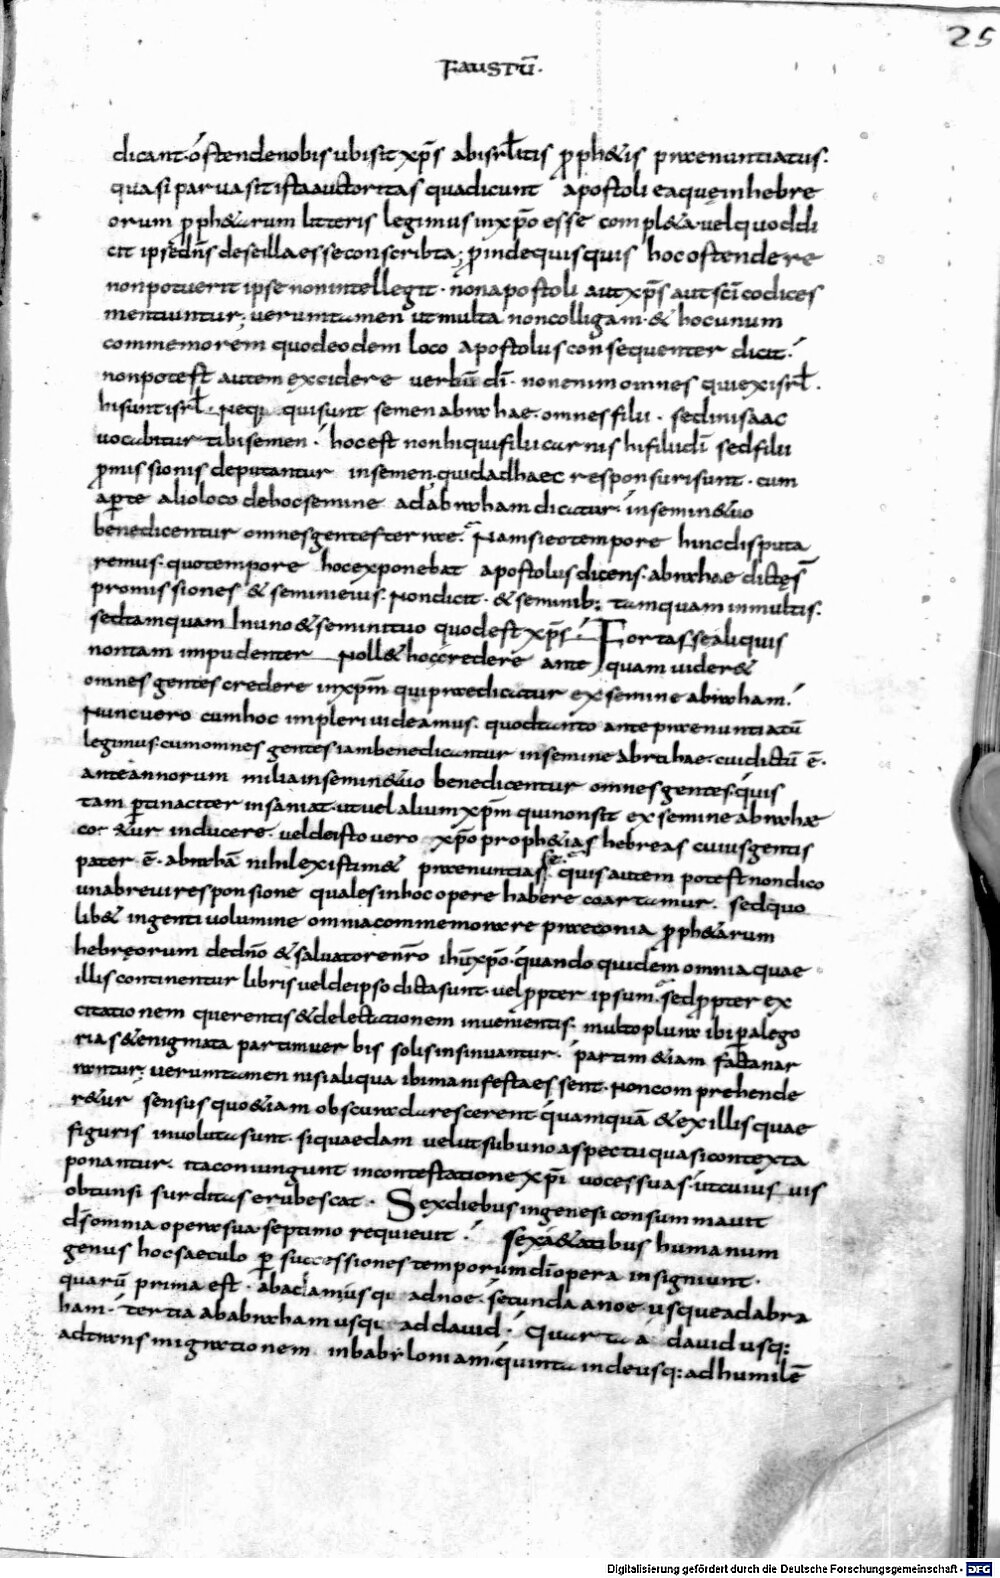 25
FAUSTŪ.
dicant. ostende nobis ubi sit xp̄s ab isrl̄itis proph&is praenuntiatus.
quasi parva sit ista auctoritas qua dicunt apostoli ea quę in hebre
orum proph&arum litteris legimus in xp̄o esse compl&a. vel quod di
cit ipse dn̄s de se illa esse conscribta; proinde quisquis hoc ostendere
non potuerit ipse non intellegit. non apostoli aut xp̄s aut sc̄i codices
mentiuntur; verumtamen ut multa non colligam. & hoc unum
commemorem quod eodem loco apostolus consequenter dicit.
non potest autem excidere verbū dī. non enim omnes qui ex isrl̄.
hi sunt isrl̄. Neq; qui sunt semen abrahae. omnes filii. sed in isaac
vocabitur tibi semen. hoc est non hi qui filii carnis hi filii dī sed filii
promissionis deputantur in semen. quid ad haec responsuri sunt. cum
aperte alio loco de hoc semine ad abraham dicatur. in semine tuo
benedicentur omnes gentes terrae. Nam si eo tempore hinc disputa
remus. quo tempore hoc exponebat apostolus dicens. abrahae dictę s̄
promissiones & semini eius. Non dicit. & seminib; tamquam in multis.
sed tamquam In uno & semini tuo quod est xp̄s. Fortasse aliquis
non tam impudenter Noll& hoc credere ante quam vider&
omnes gentes credere in xp̄m qui praedicatur ex semine abraham.
Nunc vero cum hoc impleri videamus. quod tanto ante praenuntiatū
legimus. cum omnes gentes iam benedicantur in semine Abrahae. cui dictū ē.
ante annorum milia in semine tuo benedicentur omnes gentes. quis
tam pertinaciter insaniat. ut vel alium xp̄m qui non sit ex semine abrahae
con&ur inducere. vel de isto vero xp̄o proph&ias hebreas cuius gentis
pater ē. abrahā nihil existim& praenuntiasse. quis autem potest non dico
una brevi responsione quales in hoc opere habere coartamur. sed quo
lib& ingenti volumine omnia commemorare praeconia proph&arum
hebreorum de dn̄o & salvatore nr̄o ih̄u xp̄o. quando quidem omnia quae
illis continentur libris vel de ipso dicta sunt. vel propter ipsum. sed propter ex
citationem querentis & delectationem invenientis. multo plura ibi per alego
rias & enigmata partim verbis solis insinuantur. partim &iam facta nar
rantur; verumtamen nisi aliqua ibi manifesta essent. Non comprehende
r&ur sensus quo &iam obscura clarescerent. quamquā & ex illis quae
figuris involuta sunt. si quaedam velut sub uno aspectu quasi contexta
ponantur. ita coniungunt in contestatione xp̄i voces suas. ut cuiusvis
obtunsi surditas erubescat. Sex diebus in genesi consummavit
d̄s omnia opera sua. septimo requievit. sex aetatibus humanum
genus hoc saeculo per successiones temporum dī opera insigniunt.
quarū prima est. ab adam usq; ad noe. secunda a noe usque ad abra
ham. tertia ab abraham usq; ad david. Quarta a david usq;
ad transmigrationem in babyloniam. quinta inde usq; ad humilē
Digitalisierung gefördert durch die Deutsche Forschungsgemeinschaft - DFG